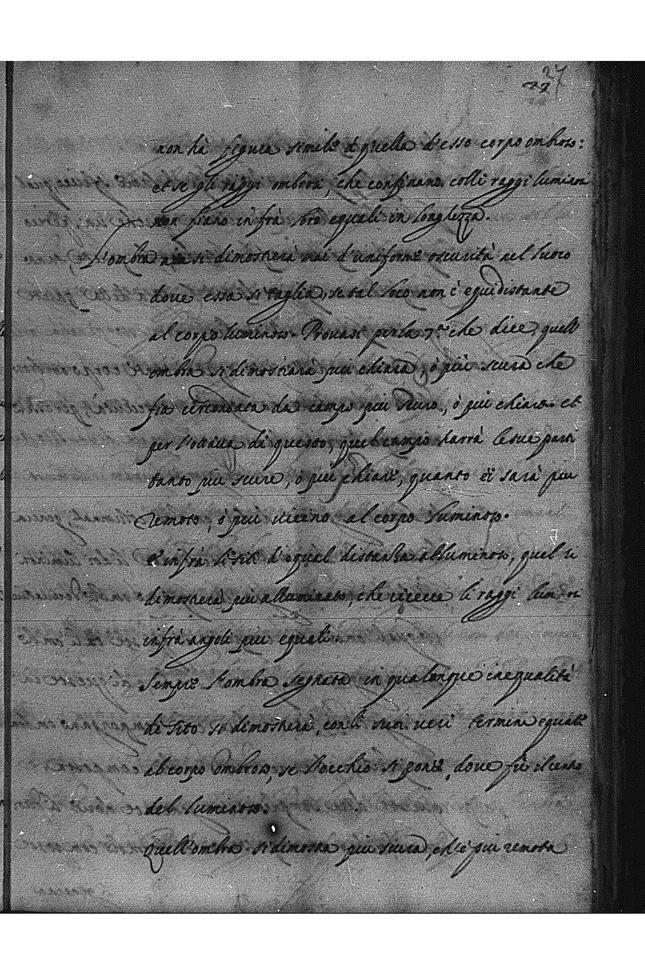 27
non hà figura simile à quella d'esso corpo ombroso:
et se gli raggi ombrosi, che confinano colli raggi luminosi
non siano infrà loro equali in longhezza.
L'ombra non si dimosterà mai d'uniforme oscurità nel luoco
dove essa si taglia, se tal loco non è equidistante
al corpo luminoso. Provasi per la 7.ª che dice, quell'
ombra si dimostrarà più chiara, ò più scura che
fia circondata da campo più scuro, ò più chiaro. et
per l'ottava di questo, quel campo harrà le sue parti
tanto più scure, ò più chiare, quanto ei sarà più
remoto, ò più vicino al corpo luminoso.
Et infrà li siti d'equal distanza al luminoso, quel si
dimosterà più alluminato, che riceve li raggi luminosi
infrà angoli più equali.
Sempre l'ombra segnata in qualonque inequalità
di sito si dimosterà, con li suoi veri termini equale
al corpo ombroso, se l'occhio si pone, dove fù il cento
del luminoso.
Quell'ombra si dimostra più scura, ch'è più remota